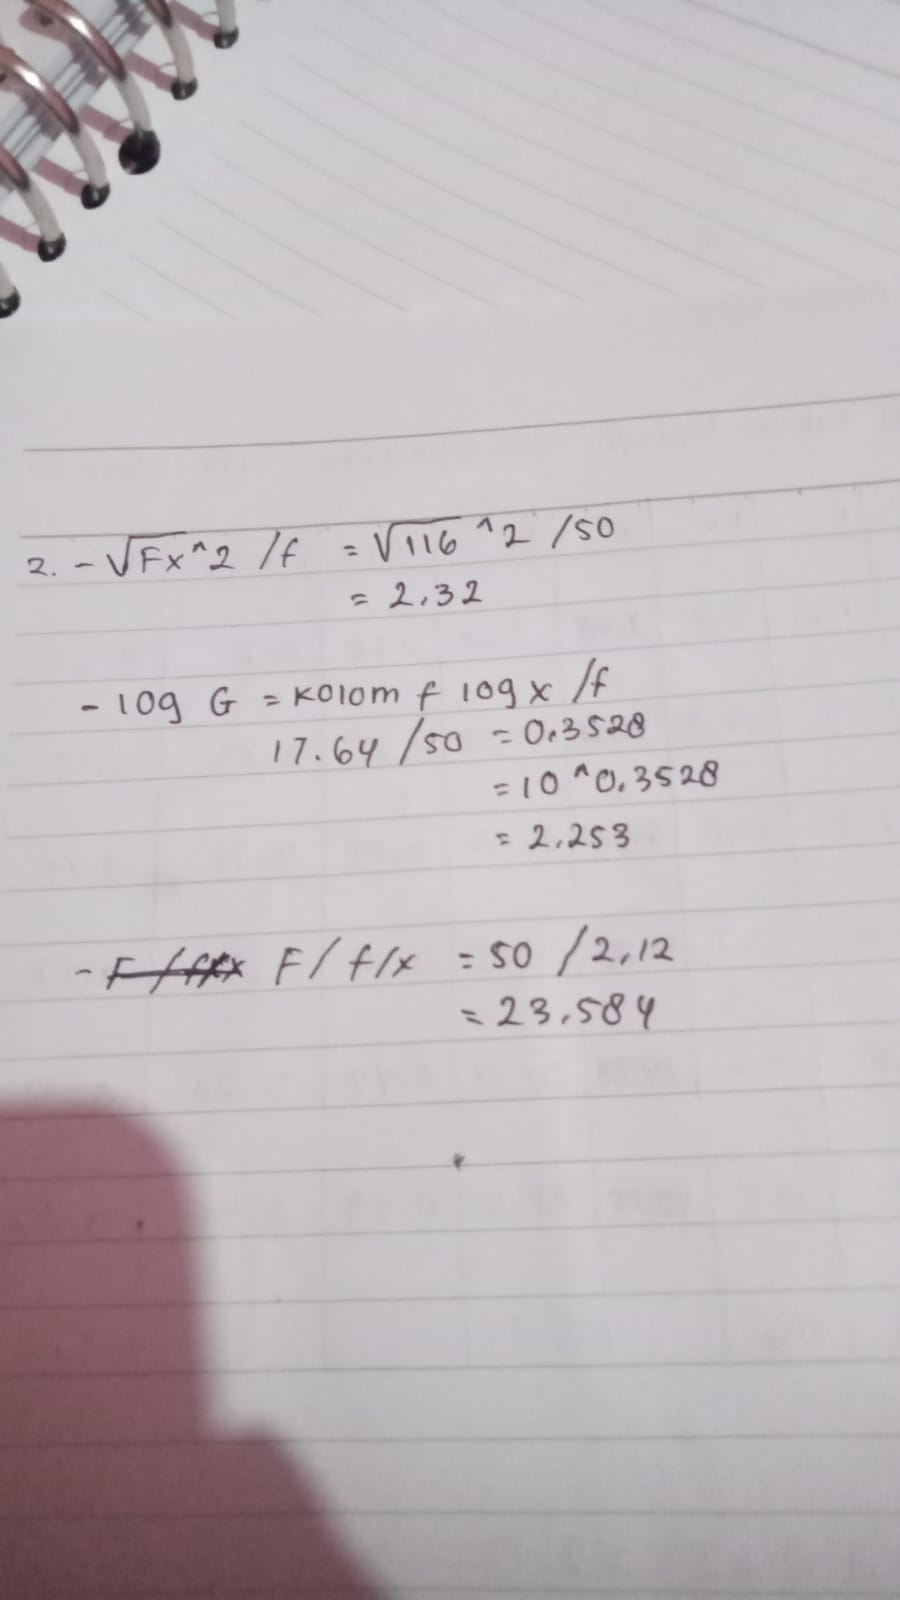 2. - √Fx^2 /f = √116^2 /50
= 2.32
- log G = Kolom f log x /f
17.64 /50 = 0.3528
= 10^0.3528
= 2.253
- F/f/x = 50 /2,12
= 23.584